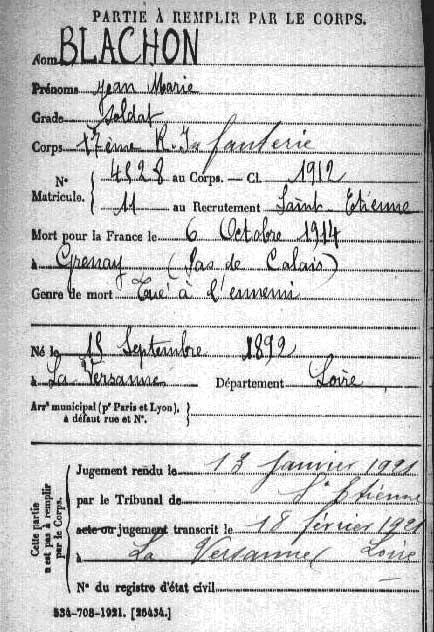 PARTIE À REMPLIR PAR LE CORPS.
Nom BLACHON
Prénoms Jean Marie
Grade Soldat
Corps 17ème R. Infanterie
N° 4828 au Corps. — Cl. 1912
Matricule. 11 au Recrutement Saint Etienne
Mort pour la France le 6 Octobre 1914
à Grenay (Pas de Calais)
Genre de mort Tué à l'ennemi
Né le 18 Septembre 1892
à La Versanne Département Loire
Arrt municipal (pr Paris et Lyon), à défaut rue et N°.
Cette partie n'est pas à remplir par le Corps.
Jugement rendu le 13 janvier 1921
par le Tribunal de St Etienne
acte ou jugement transcrit le 18 février 1921
à La Versanne (Loire
N° du registre d'état civil
534-708-1921. [26434.]